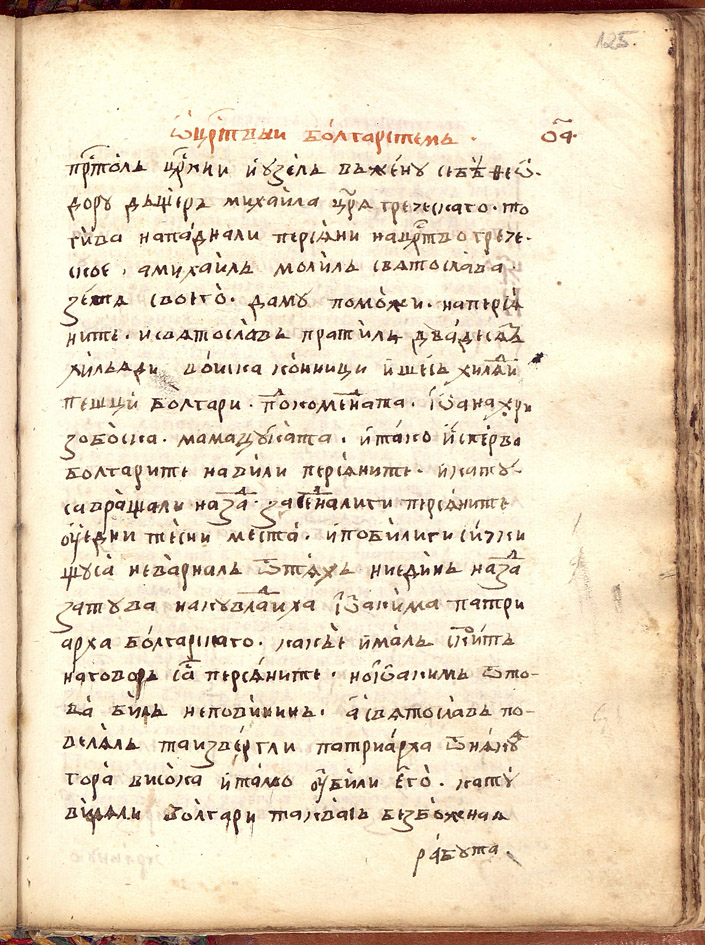 125.
Ѡ црⷭ҇твыи болгарстемь . ѻ҃а
прⷭ҇толь црⷭ҇кии и узель вь жену себѣ ѳеѡ-
дору дьщерь михаила црѧ греческаго. то-
гива нападнали персѧни на црⷭ҇тво грече-
ское, а михаиль молиль свѧтослава
зетѧ своего. да му поможи. на персіѧ
ните. и свѧтославь пратиль двадесѧть
хильѧди воиска конници и шесь хилѧⷣи
пешци болгари. поⷣ командⷣата. іѡана хри
зобоска. мамацуката. и тако исперва
болгарите набили персѧните. и кату
са вращали назаⷣ. засеⷣнали ги персѧните
оу едни тесни места. и побили ги сички
щуса неварналь ѿ тѧхь ни единь назаⷣ
затува наклѣвⷣетиха іѡакима патри
арха болгарскаго. какье ималь скⷬ҇ить
наговорь саⷭ персѧните. но іѡакимь ѿ то-
ва биль неповининь. а свѧтославь по-
велѧль та извергли патриарха ѿ нѧкоѧ
гора висока и тамо оубили его. кату
видѧли болгари такваѧ безбожнаѧ
рабута.